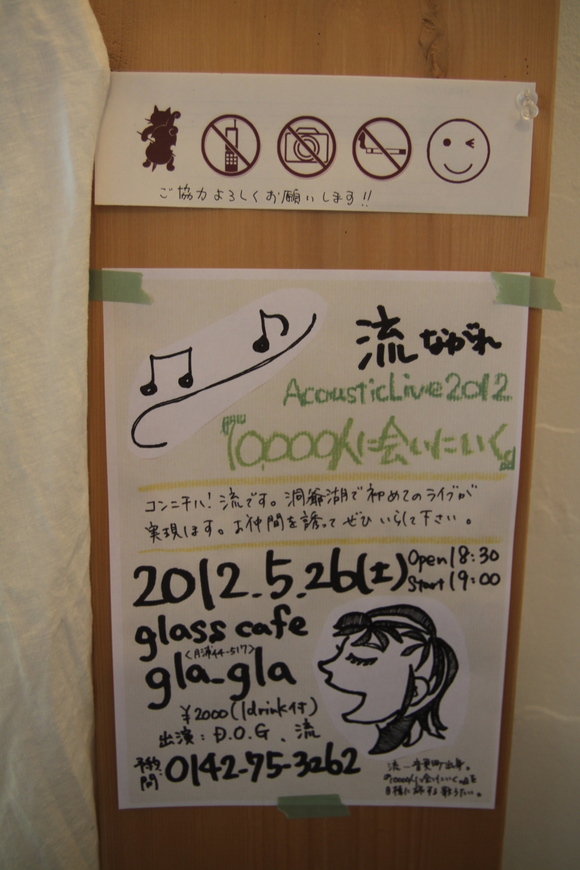 ご協力よろしくお願いします!!
流 ながれ
AcousticLive2012
『10,000人に会いにいく』
コンニチハ！流です。洞爺湖で初めてのライブが
実現します。お仲間を誘って ぜひ いらして下さい。
2012.5.26(土) Open 18:30
Start 19:00
glass cafe
〈月浦44-517〉
gla_gla
¥2000(1drink付)
出演：D.O.G、流
予約
問 : 0142-75-3262
『10000人に会いにいく』を